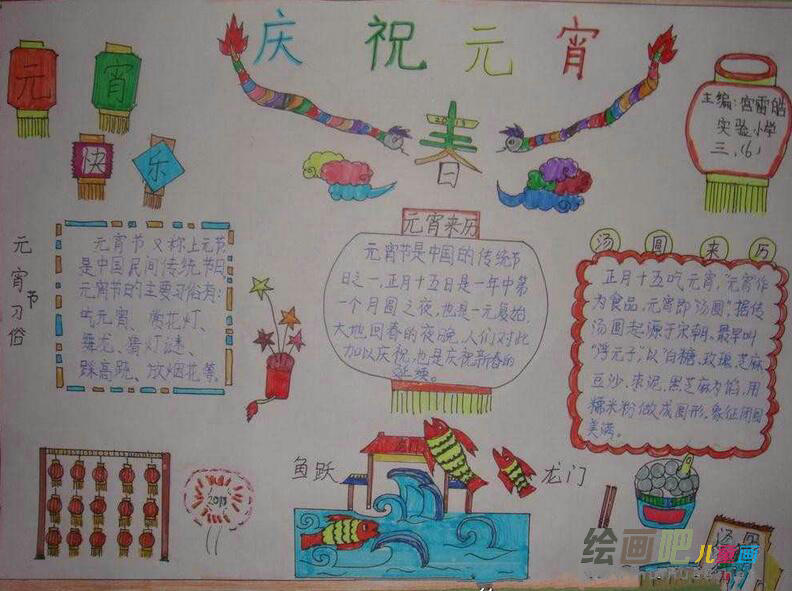 庆祝元宵
元
宵
快
乐
春
主编:宫雷皓
实验小学
三、(6)
元宵节习俗
元宵节又称上元节
是中国民间传统节日,
元宵节的主要习俗有:
吃元宵、赏花灯、
舞龙、猜灯谜、
踩高跷、放烟花等。
元宵来历
元宵节是中国的传统节
日之一,正月十五日是一年中第
一个月圆之夜,也是一元复始,
大地回春的夜晚,人们对此
加以庆祝,也是庆祝新春的
延续。
汤圆来历
正月十五吃元宵,"元宵作
为食品,元宵即"汤圆",据传
汤圆起源于宋朝、最早叫
"浮元子",以"白糖、玫瑰、芝麻
豆沙、枣泥、黑芝麻为馅,用
糯米粉做成圆形,象征团圆
美满。
2013
鱼跃
龙门
汤圆
绘画吧儿童画